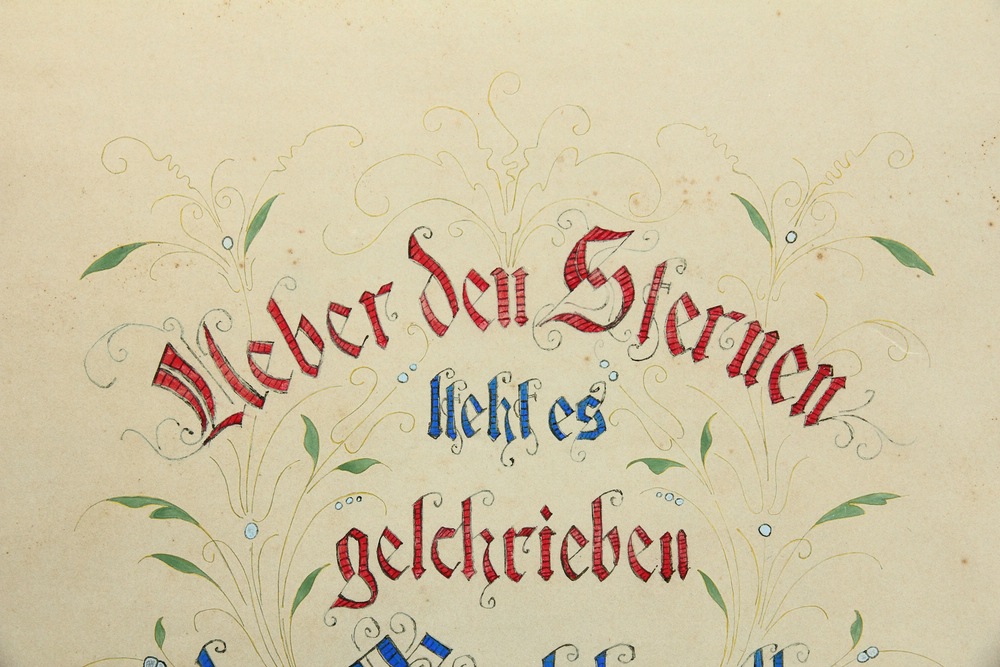 Ueber den Sternen
ſteht es
geſchrieben